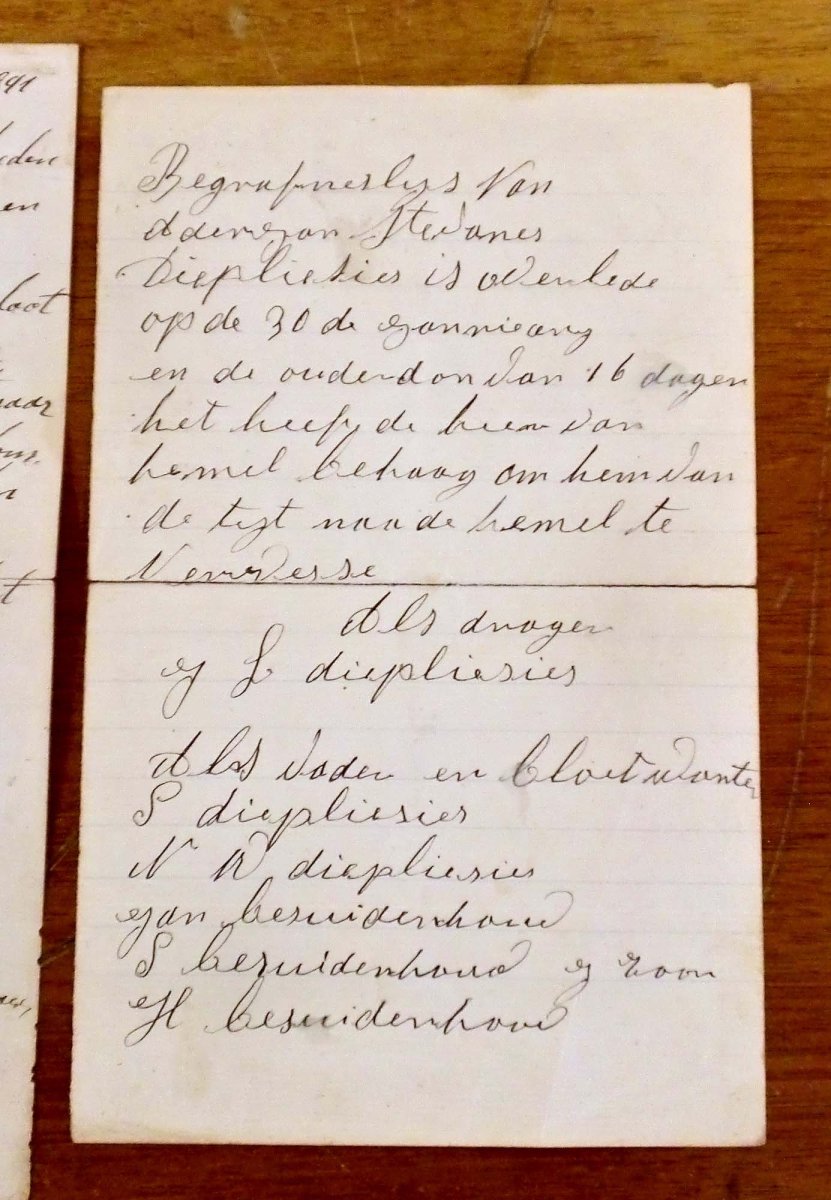 Begrafneslys Van
Aderejan Stevanes
Diepliesies is overlede
op de 30 de Jannieary
en de ouderdon van 16 dagen
het heefy de heer van
hemel behaag om hem van
de tyt naade hemel te
Verwesse
Als drager
J L diepliesies
Als vader en bloetwanter
S diepliesies
N W diepliesies
Jan besuidenhoud
S besuidenhoud J zoon
H besuidenhoud